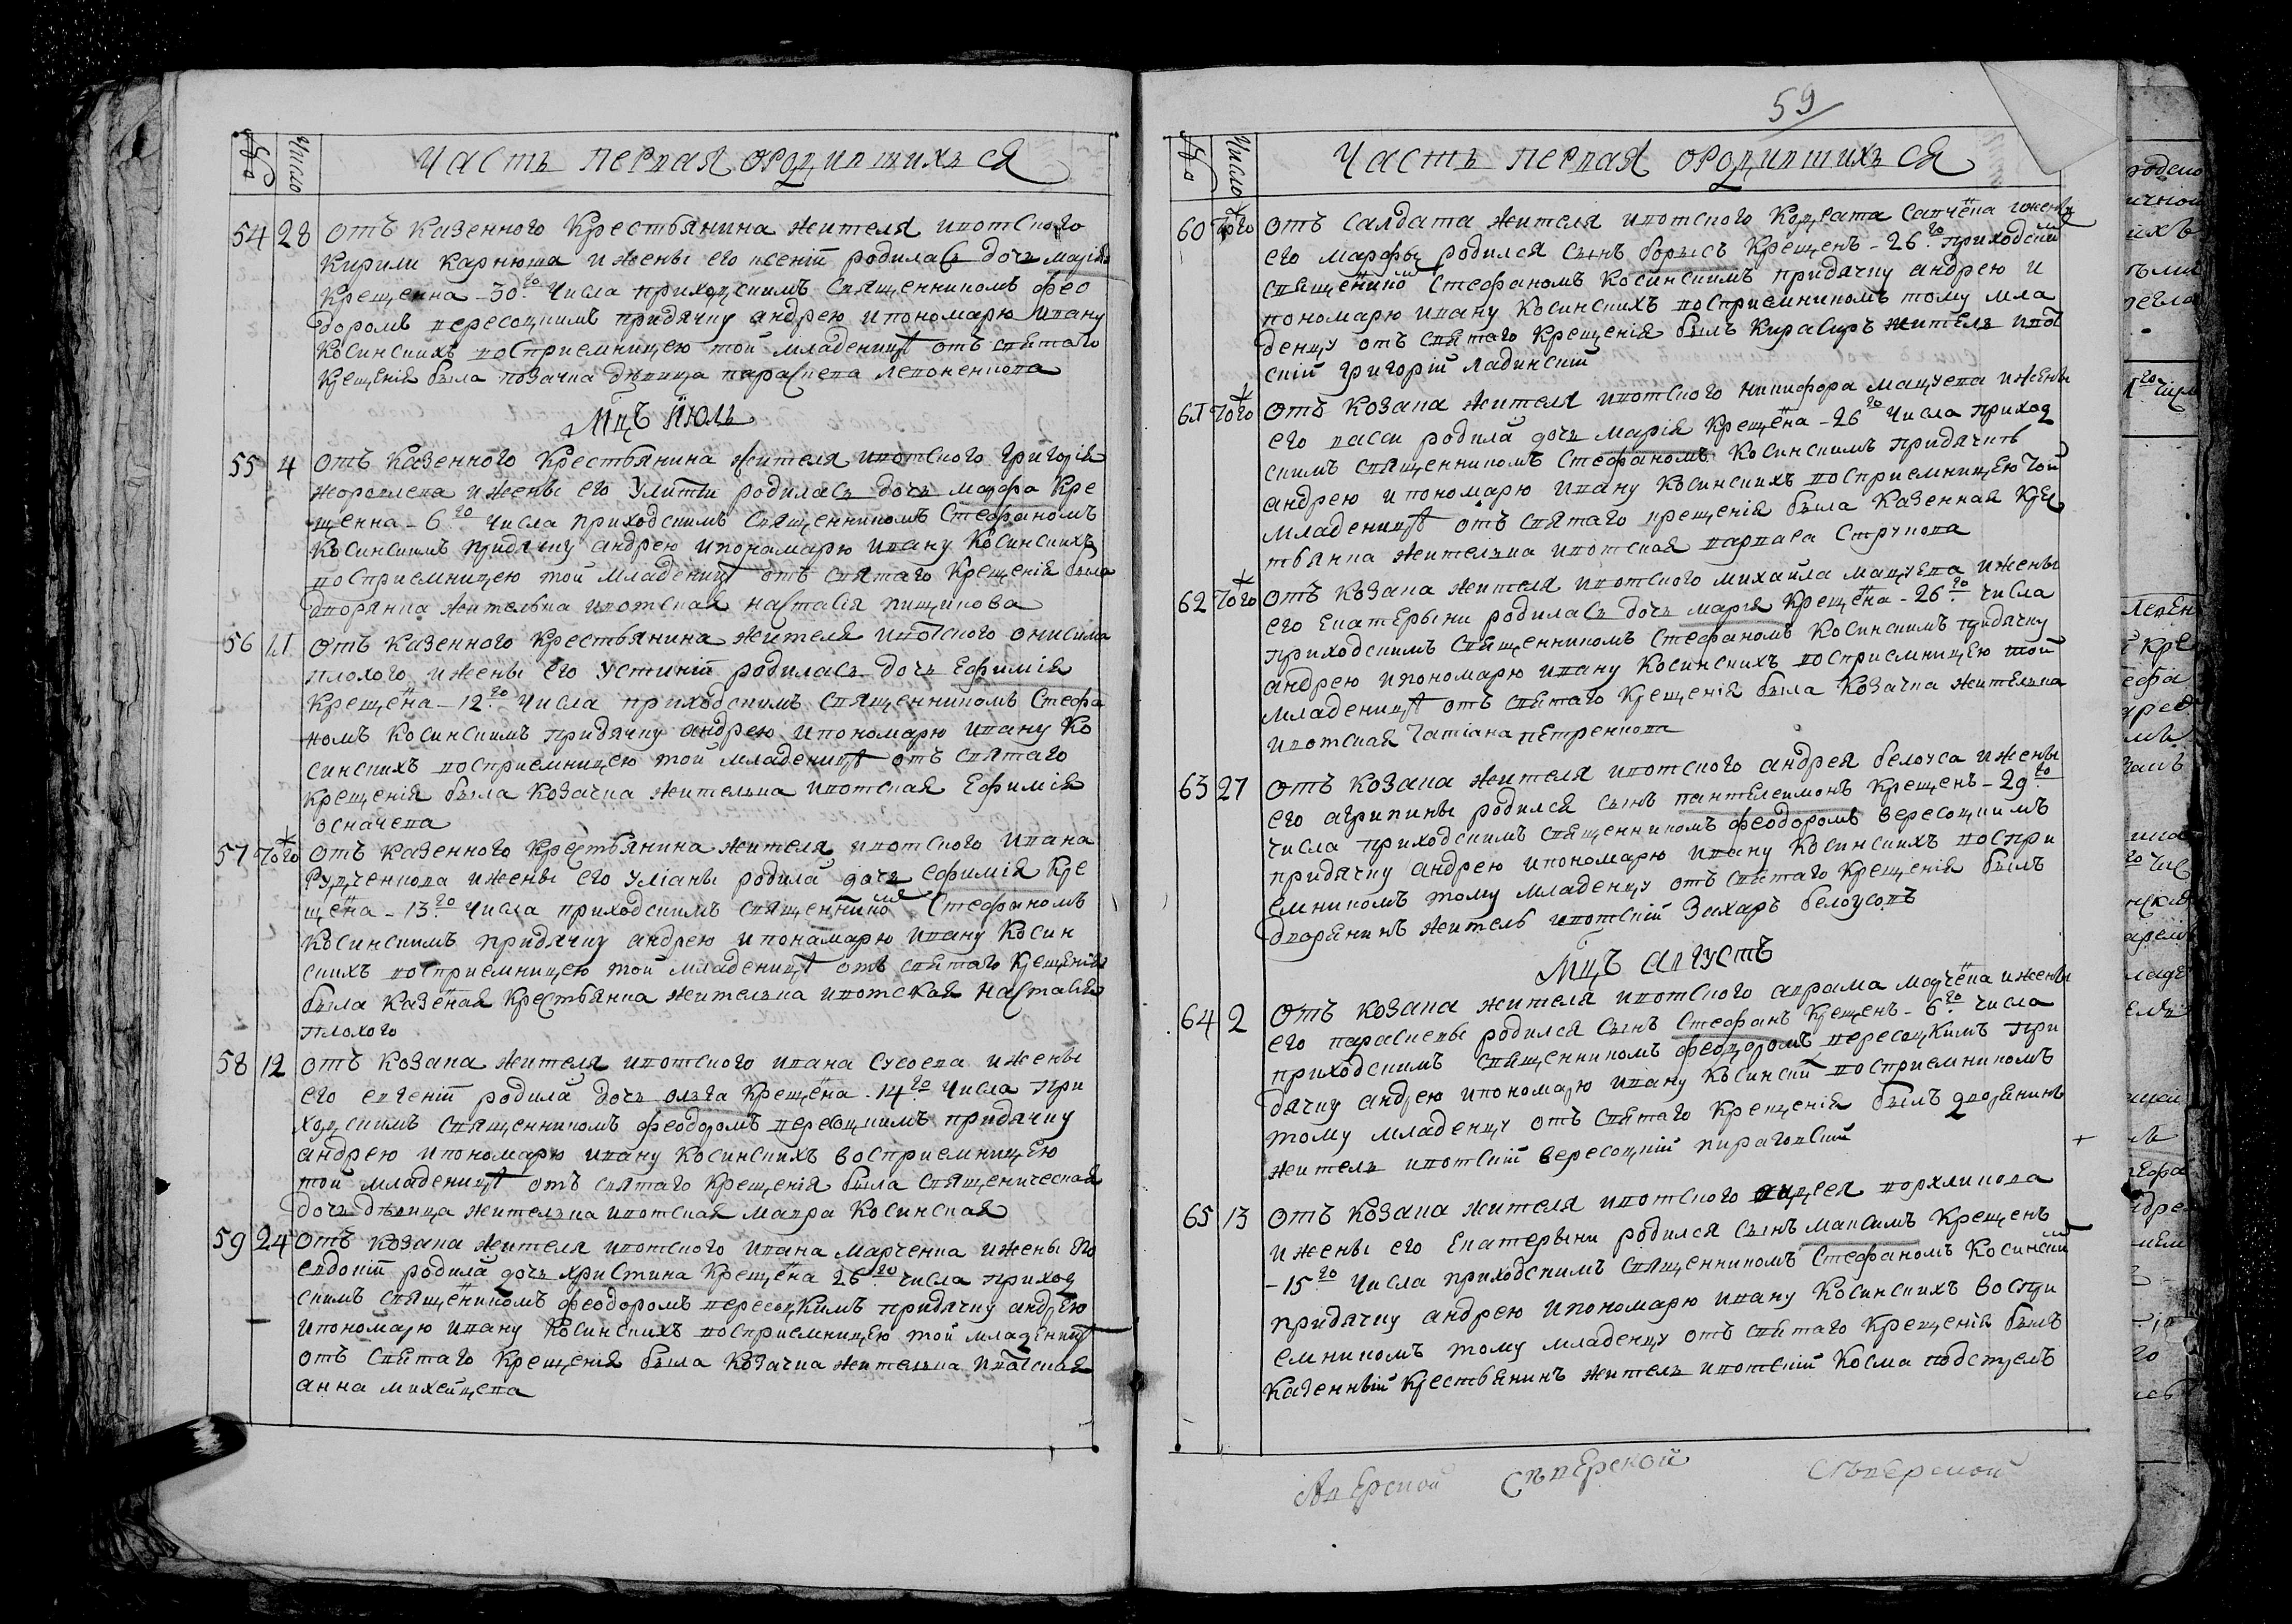 № Число Часть первая ородившихъся
54 28 отъ казенного крестьянина жителя ивотского
Кирили Карнюша и жены его ксеніи родилась дочь марія
крещенна - 30го числа приходскимъ священникомъ фео
доромъ вересоцкимъ придячку андрею и пономарю Ивану
Косинскихъ восприемницею той младеницѣ отъ святаго
крещенія была козачка дѣвица параскева
Мцъ июль
55 4 отъ казенного крестьянина жителя ивотского григорія
и жены его Улиты родилась дочь марфа кре
щенна - 6го числа приходскимъ священникомъ Стефаномъ
Косинскимъ придячку андрею и пономарю ивану Косинскихъ
восприемницею той младеницѣ отъ святаго крещенія была
дворянка жителька ивотская настасія пищикова
56 11 отъ казенного крестьянина жителя ивотского онисима
плохого и жены его Устиніи родилась дочь Ефимія
крещена - 12го числа приходскимъ священникомъ Стефа
номъ Косинскимъ придячку андрею и пономарю ивану Ко
синскихъ восприемницею той младеницѣ отъ святаго
крещенія была козачка жителька ивотская Ефимія
осмачева
57 того отъ казенного крестьянина жителя ивотского ивана
Рудченкова и жены его Уліаны родила дочь ефимія кре
щена - 13го числа приходскимъ священникомъ Стефаномъ
Косинскимъ придячку андрею и пономарю ивану Косин
скихъ восприемницею той младеницѣ отъ святаго крещенія
была казеная крестьянка жителька ивотская настасія
плохого
58 12 отъ козака жителя ивотского ивана Сусоева и жены
его евгеніи родила дочь олга крещена . 14го числа при
ходскимъ священникомъ феодоромъ вересоцкимъ придячку
андрею и пономарю ивану Косинскихъ восприемницею
той младеницѣ отъ святаго крещенія была священическая
дочь дѣвица жителька ивотская мавра Косинская
59 24 отъ козака жителя ивотского ивана марченка и жены его
евдокіи родила дочь христина крещена 26го числа приход
скимъ священикомъ феодоромъ вересоцкимъ придячку андрею
и пономарю ивану Косинскихъ восприемницею той младеницѣ
отъ святаго крещенія была козачка жителька ивотская
анна михейцева
59
№ Число Часть первая ородившихъся
60 того отъ салдата жителя ивотского Кодрата Савчена и жены
его марфы родился сынъ борысъ крещенъ - 26го приходским
священикомъ Стефаномъ Косинскимъ придячку андрею и
пономарю ивану Косинскихъ восприемникомъ тому мла
денцу отъ святаго крещенія былъ Кирасиръ житель ивот
скій григорій ладинскій
61 того отъ козака жителя ивотского никифора мацуева и жены
его васси родила дочь марія крещена - 26го числа приход
скимъ священникомъ Стефаномъ Косинскимъ придячку
андрею и пономарю ивану Косинскихъ восприемницею той
младеницѣ отъ святаго крещенія была казенная крес
тьянка жителька ивотская варвара Струкова
62 того отъ козака жителя ивотского михайла мацуева и жены
его Екатерыни родилась дочь марія крещена - 26го числа
приходскимъ священникомъ Стефаномъ Косинскимъ придячку
андрею и пономарю ивану Косинскихъ восприемницею той
младеницѣ отъ святаго крещенія была козачка жителька
ивотская татіана петренкова
63 27 отъ козака жителя ивотского андрея белоуса и жены
его агрипины родился сынъ пантелеимонъ крещенъ - 29го
числа приходскимъ священникомъ феодоромъ вересоцкимъ
придячку андрею и пономарю ивану Косинскихъ воспри
емникомъ тому младенцу отъ святаго крещенія былъ
дворянинъ житель ивотскій Захаръ белоусовъ
Мцъ августъ
64 2 отъ козака жителя ивотского аврама марчена и жены
его параскевы родился сынъ Стефанъ крещенъ - 6го числа
приходскимъ священникомъ феодоромъ вересоцкимъ при
дячку андрею и пономарю ивану Косинских восприемникомъ
тому младенцу отъ святаго крещенія былъ дворянинъ
житель ивотскій вересоцкій пираговскій
65 13 отъ козака жителя ивотского
и жены его Екатерыни родился сынъ максимъ крещенъ
- 15го числа приходскимъ священникомъ Стефаномъ Косинским
придячку андрею и пономарю ивану Косинскихъ воспри
емникомъ тому младенцу отъ святаго крещенія былъ
казенный крестьянинъ житель ивотскій Косма
Сѣверской